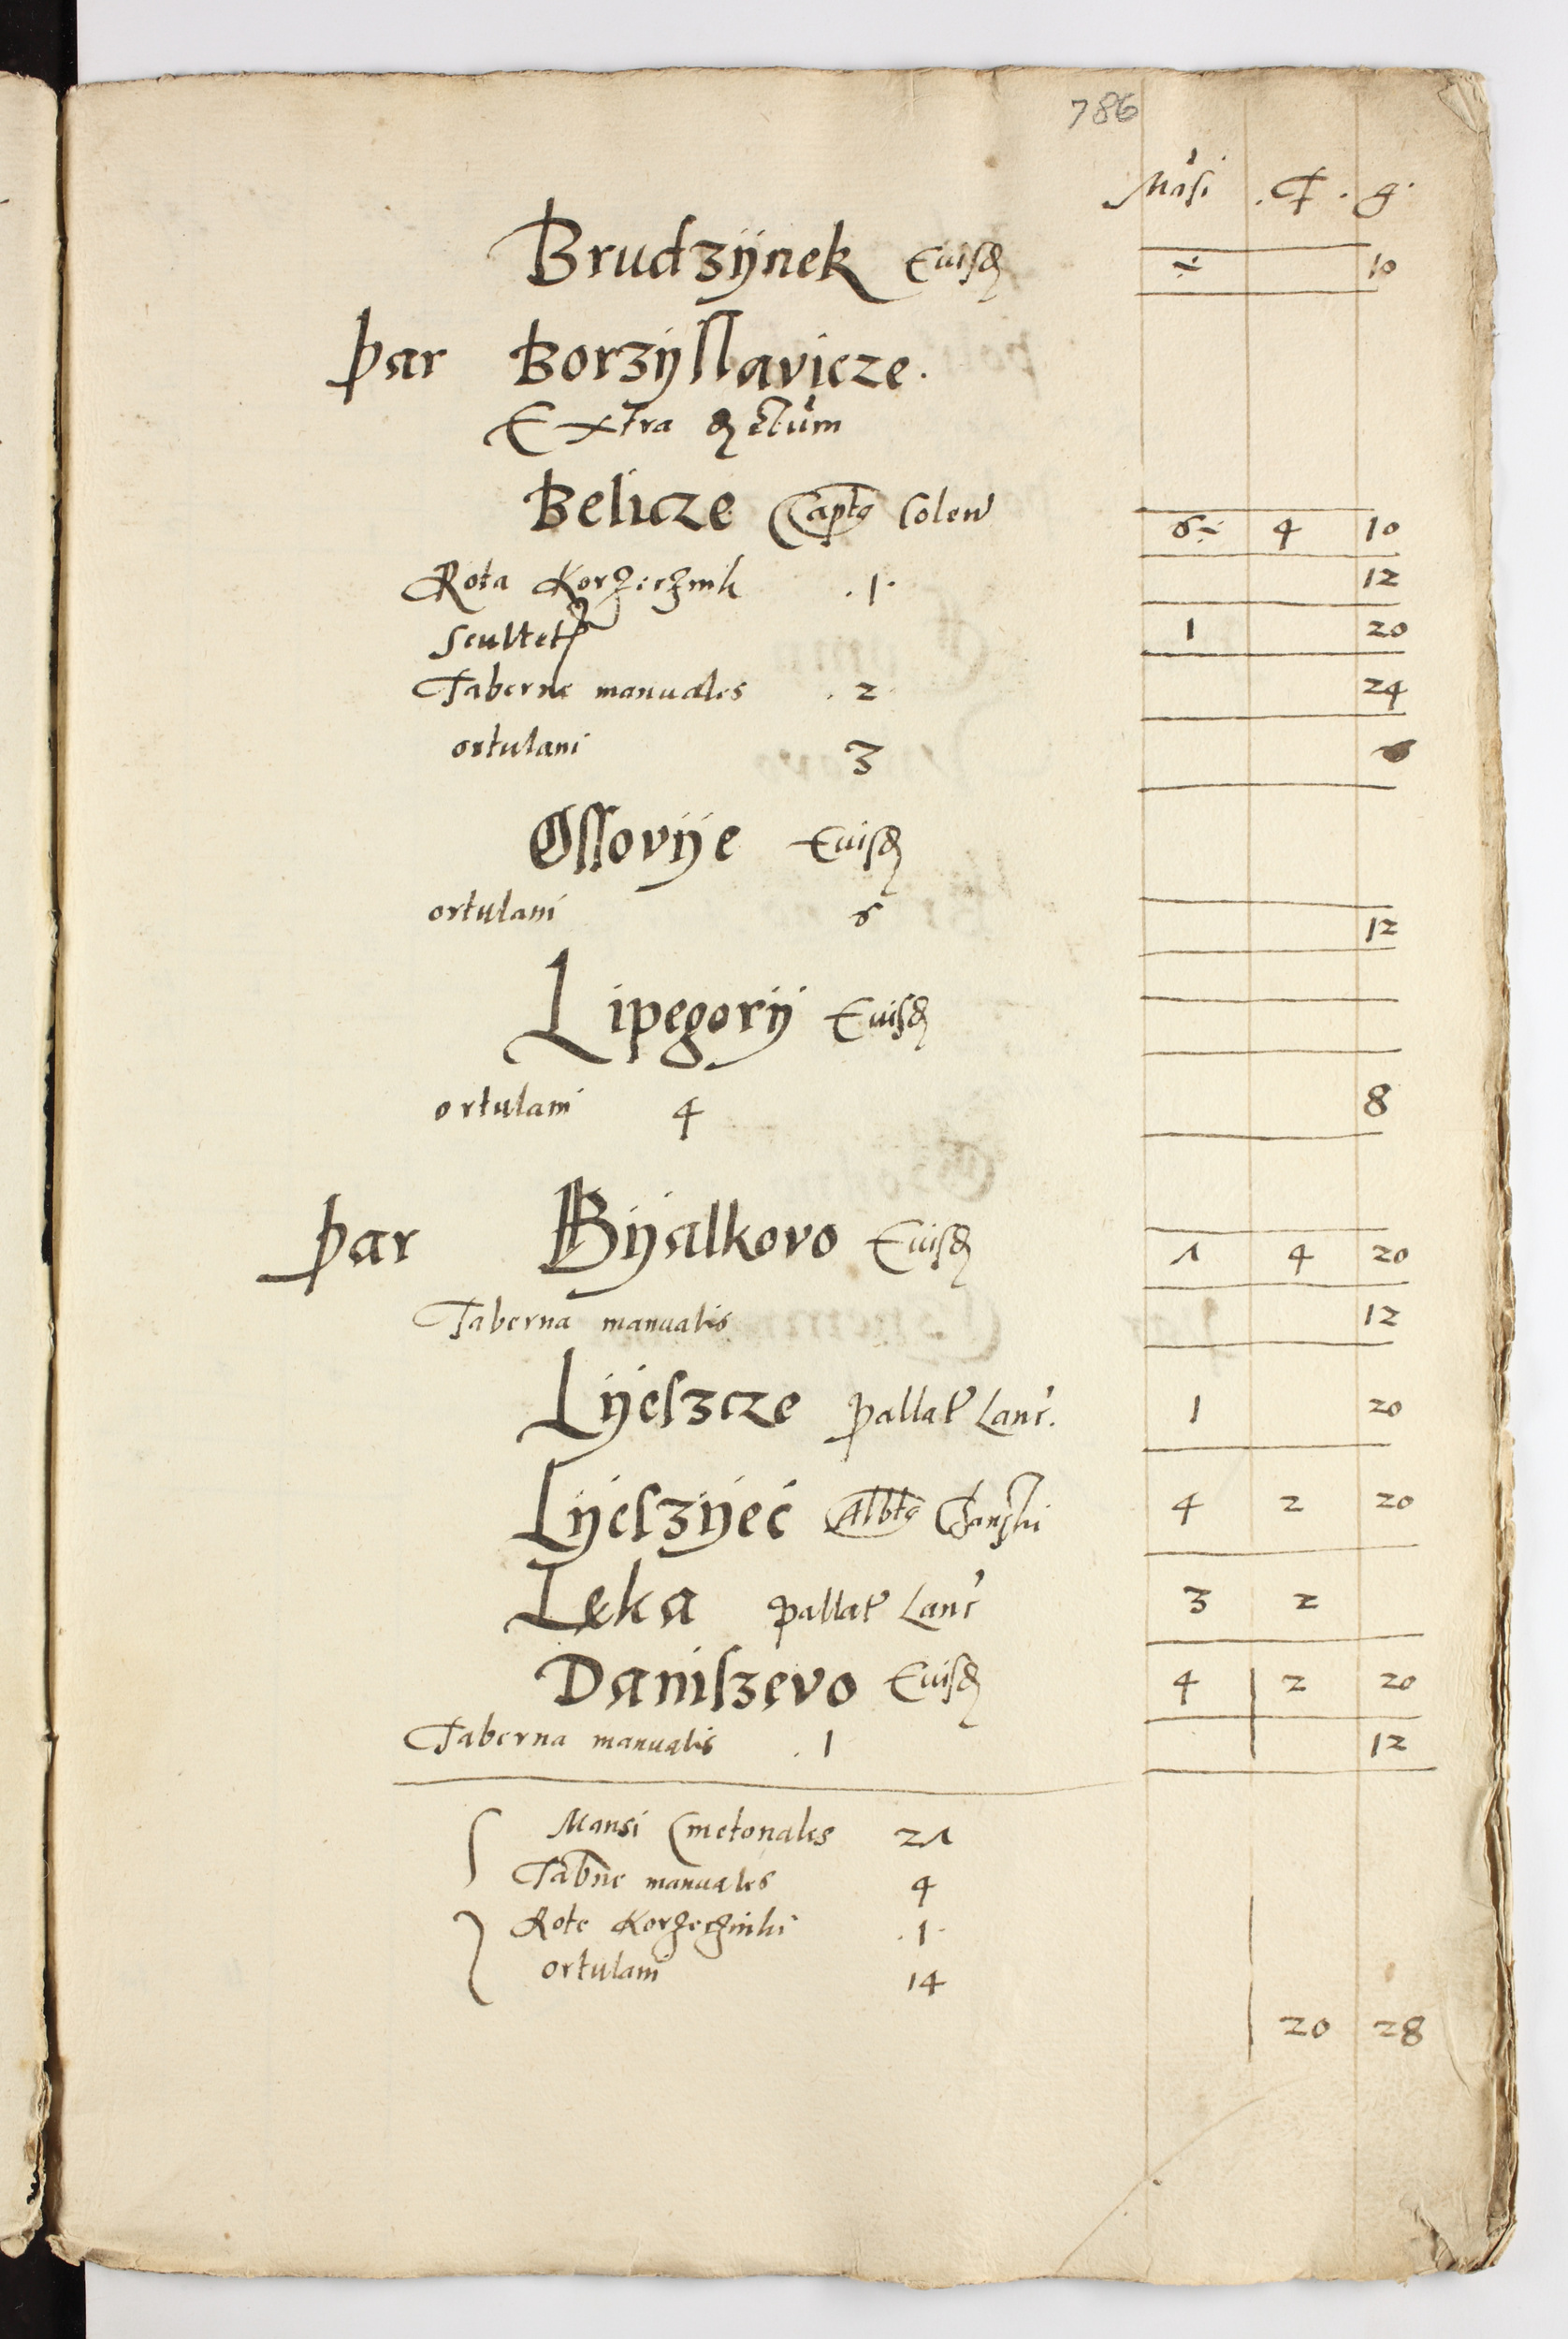 786
Mãsi . ƒ . g
Brudzÿnek Euisd ÷ 10
par Borzÿslavicze.
Extra
Belicze Captg Solen 6÷ 4 10
Rota Korzecznik .1. 12
Scultet 1 20
Taberne manuales . 2 24
ortulani 3 6
Ossovÿe Euisd
ortulani 6 12
Lipegorÿ Euisd
ortulani 4 8
par Bÿalkovo Euisd 1 4 20
Taberna manualis 12
Lÿeszcze pallat Lanc. 1 20
Lÿeszÿec Albtg 4 2 20
Leka pallat Lanc 3 2
Daniszevo Euisd 4 2 20
Taberna manualis . 1 12
Mansi Cmetonales 21
Tabne manuales 4
Rote Korzeczniki .1.
ortulani 14
20 28